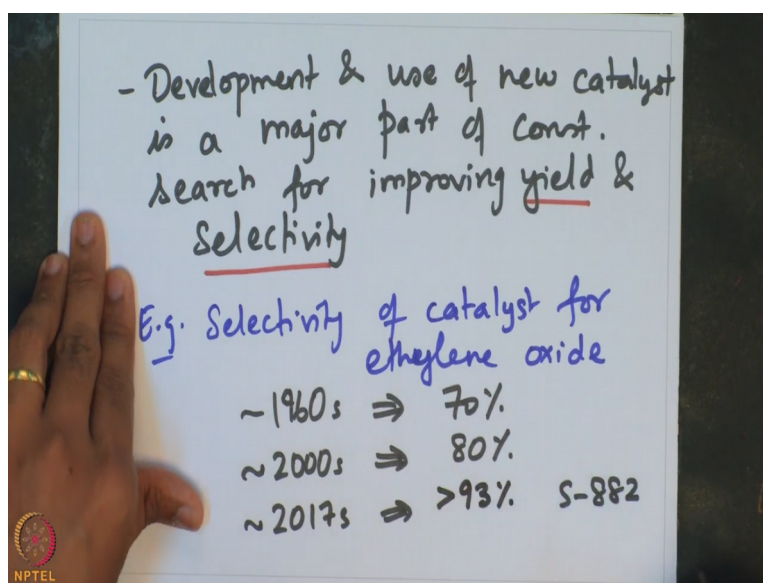 - Development & use of new catalyst
is a major part of const.
search for improving yield &
selectivity
E.g. Selectivity of catalyst for
ethylene oxide
~1960s ⇒ 70%.
~2000s ⇒ 80%.
~2017s ⇒ >93%. S-882
NPTEL